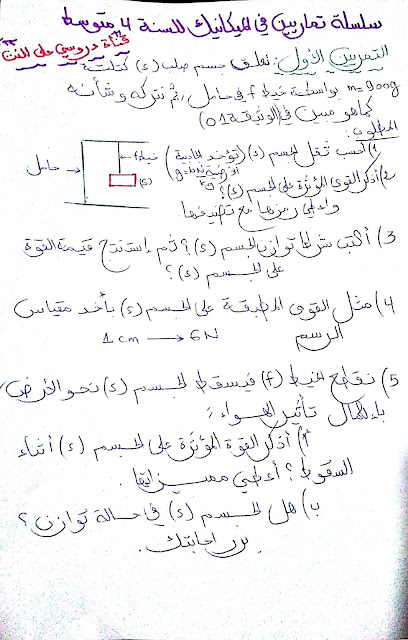 سلسلة تمارين في الميكانيك للسنة 4 متوسط
قناة دروسي على النت
التمرين الأول: نعلق جسم صلب (s) كتلته
m=900g بواسطة خيط f في حامل، ثم نتركه و شأنه
كما هو مبين في (الوثيقة 01)
المطلوب:
1) أحسب ثقل الجسم (s) (تؤخذ الجاذبية
الأرضية g=10 N/kg)
2) أذكر القوى المؤثرة على الجسم (s)؟
و اعطي رمزها مع تصنيفها.
حامل
خيط f
(s)
3) أكتب شرط توازن الجسم (s)؟ ثم إستنتج قيمة القوة
على الجسم (s)؟
4) مثل القوى المطبقة على الجسم (s) بأخذ مقياس
الرسم 1cm → 6N
5) نقطع الخيط (f) فيسقط الجسم (s) نحو الأرض
بإهمال تأثير الهواء،
أ) أذكر القوة المؤثرة على الجسم (s) أثناء
السقوط؟ أعطي مميزاتها.
ب) هل الجسم (s) في حالة توازن؟
برر اجابتك.